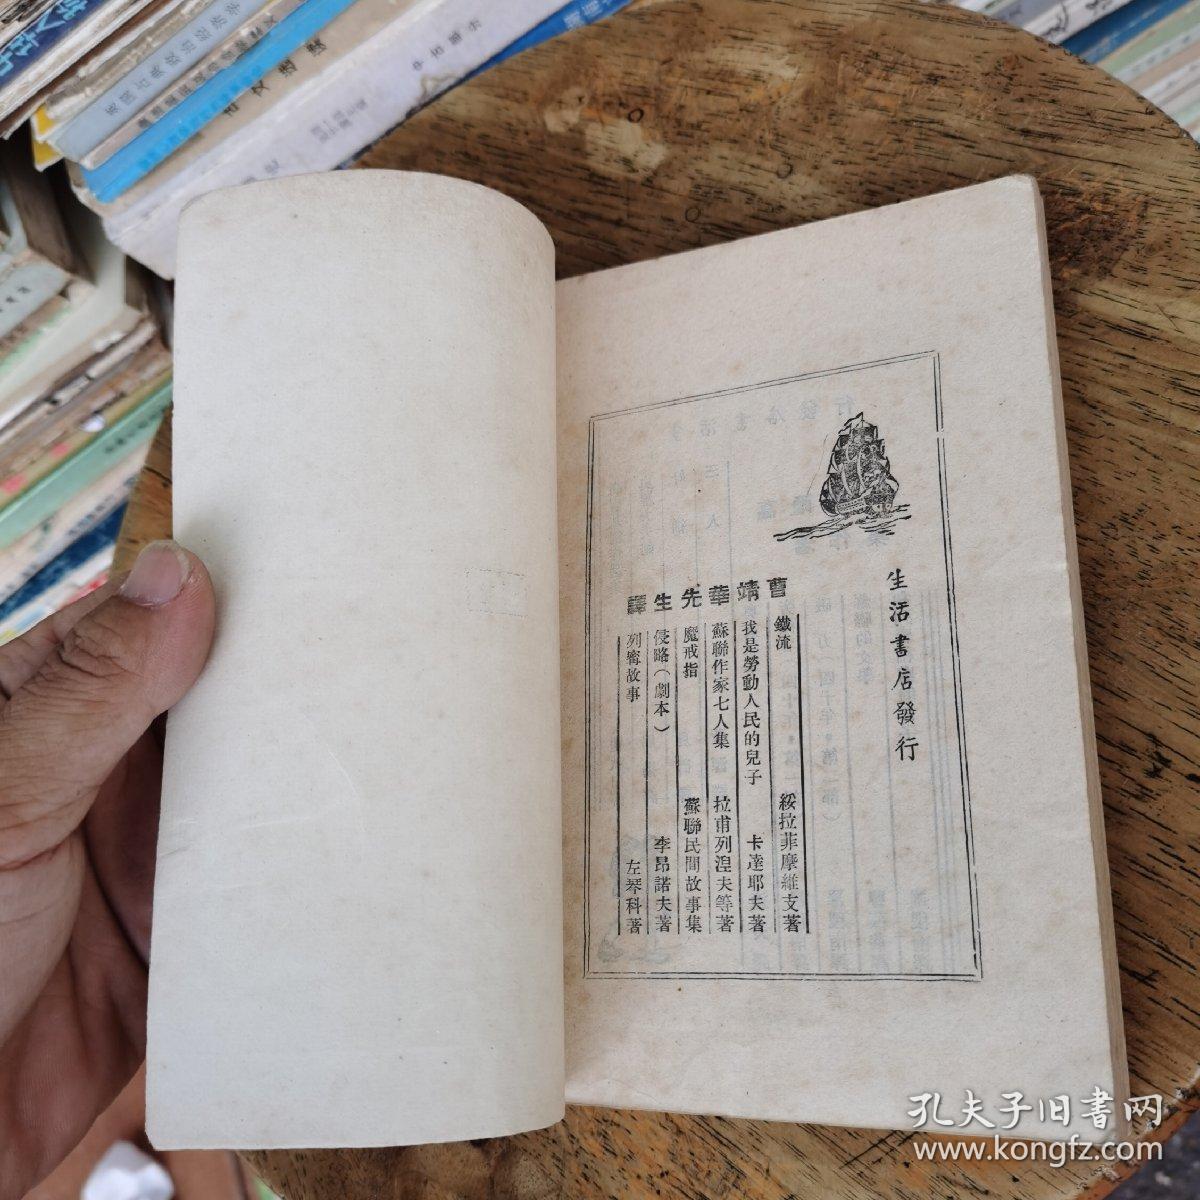 生活書店發行
曹靖華先生譯
鐵流 綏拉菲摩維支著
我是勞動人民的兒子 卡達耶夫著
蘇聯作家七人集 拉甫列湼夫等著
魔戒指 蘇聯民間故事集
侵略(劇本) 李昂諾夫著
列寧故事 左琴科著
孔夫子旧書网
www.kongfz.com